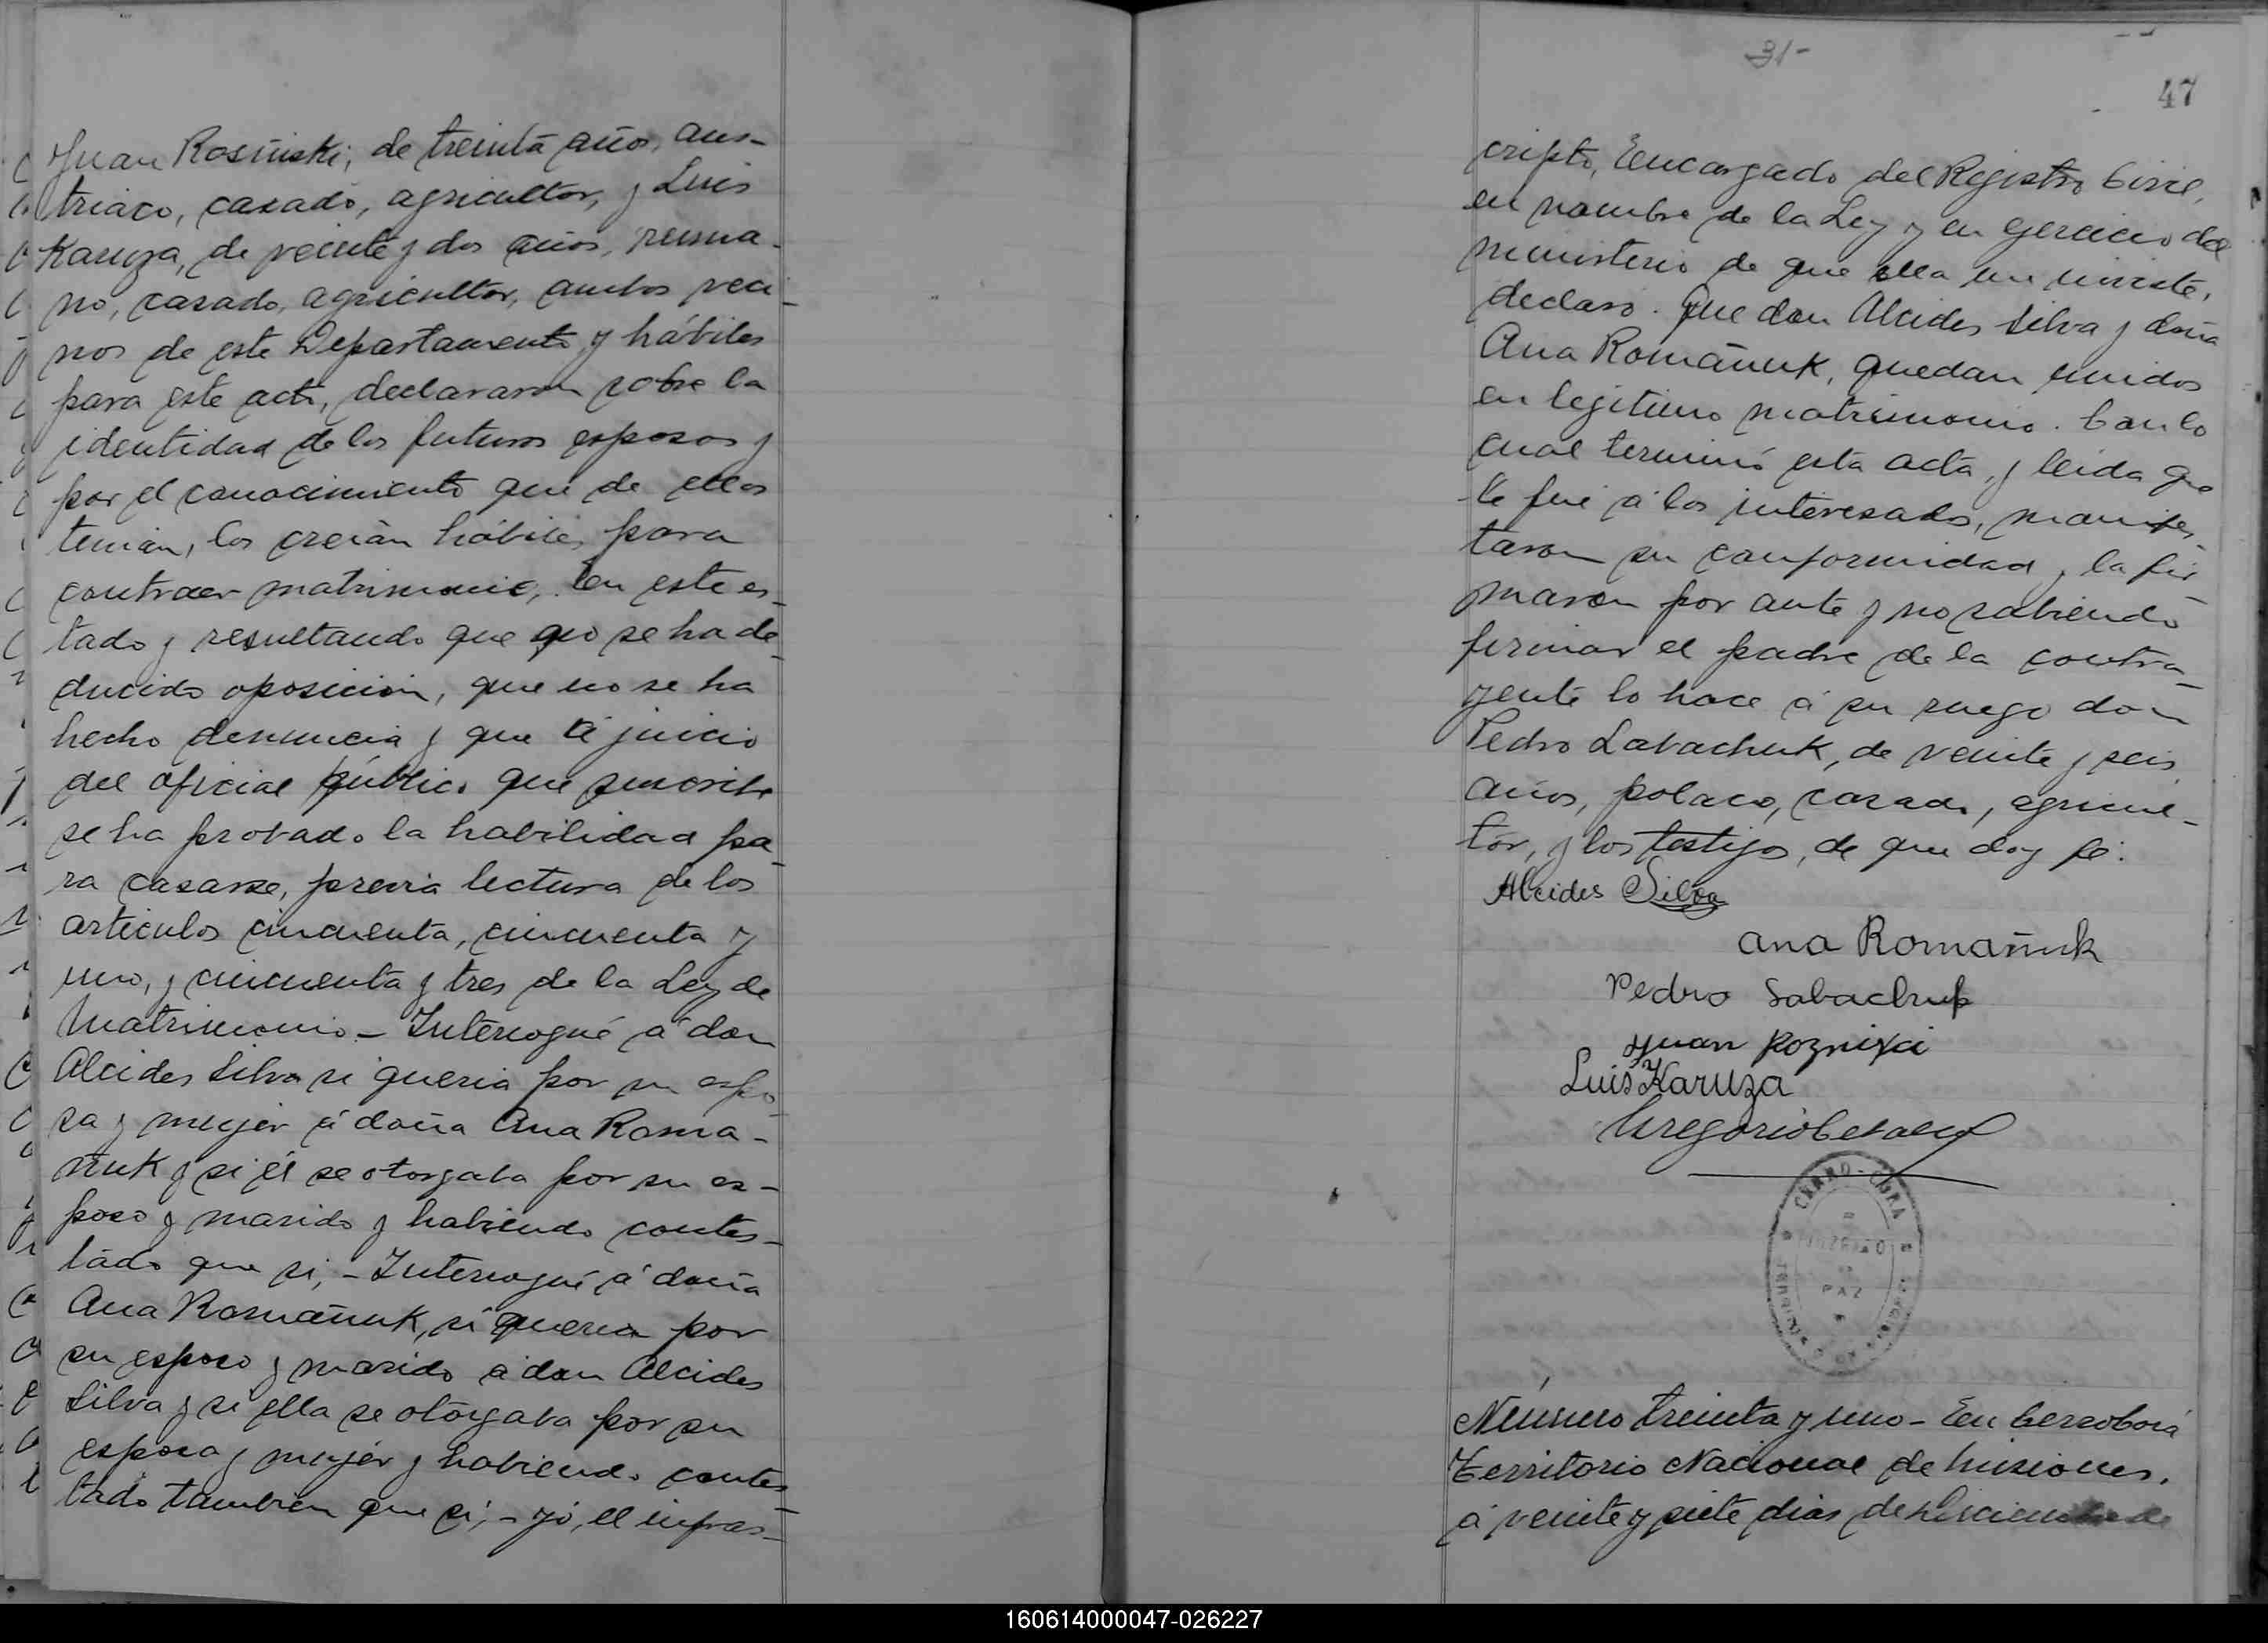 Juan Rosiñski, de treinta años, aus-
triaco, casado, agricultor, y Luis
Karuza, de veinte y dos años, ruma-
no, casado, agricultor, ambos veci-
nos de este Departamento, y hábiles
para este acto, declararon sobre la
identidad de los futuros esposos y
por el conocimiento que de ellos
tenian, los creian hábiles para
contraer matrimonio, En este es-
tado y resultando que no se ha de-
ducido oposicion, que no se ha
hecho denuncia y que á juicio
del oficial público que suscribe
se ha probado la habilidad pa-
ra casarse, previa lectura de los
articulos cincuenta, cincuenta y
uno, y cincuenta y tres de la Ley de
Matrimonio. - Interrogué á don
Alcides Silva si queria por su espo-
sa y mujer á doña Ana Roma-
ñuk y si él se otorgaba por su es-
poso y marido y habiendo contes-
tado que si, - Interrogué á doña
Ana Romañuk, si queria por
su esposo y marido á don Alcides
Silva y si ella se otorgaba por su
esposa y mujer y habiendo contes-
tado tambien que si, - yó, el infras-
31-
47
cripto, Encargado del Registro Civil,
en nombre de la Ley y en ejercicio del
ministerio de que ella me inviste,
declaro. Que don Alcides Silva y doña
Ana Romañuk, quedan unidos
en legitimo matrimonio. Con lo
cual terminó esta acta, y leida que
le fué á los interesados, manifes-
taron su conformidad y la fir
maron por ante y no sabiendo
firmar el padre de la contra-
yente lo hace á su ruego don
Pedro Labachuk, de veinte y seis
años, polaco, casado, agricul-
tor, y los testigos, de que doy fé.
Alcides Silva
Ana Romañuk
Pedro Sabachuk
Juan Roznixi
Luis Karuza
Gregorio
CERRO-CORÁ
JUZGADO
PAZ
Número treinta y uno - En Cerrocorá
Territorio Nacional de Misiones,
á veinte y siete dias de Diciembre de
160614000047-026227